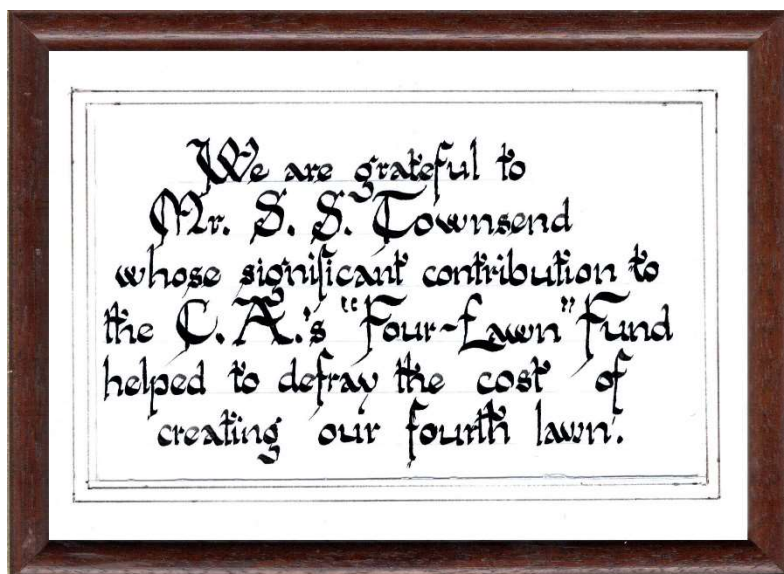 We are grateful to
Mr. S. S. Townsend
whose significant contribution to
the C.A.'s "Four-Lawn" Fund
helped to defray the cost of
creating our fourth lawn.